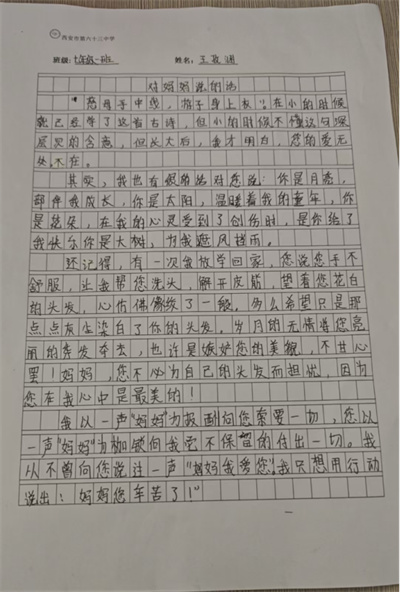 西安市第六十三中学
班级：七年级一班 姓名：王
对妈妈说的话
“慈母手中线，游子身上衣”。在小的时候
就已经学了这首古诗，但小的时候不懂这句深
层次的含意，但长大后，我才明白，您的爱无
处不在。
其实，我也有很多话对您说：你是月亮，
部伴我成长，你是太阳，温暖着我的童年，你
是花朵，在我的心灵受到了创伤时，是你给了
我快乐你是大树，为我遮风挡雨。
还记得，有一次我放学回家，您说您手不
舒服，让我帮您洗头，解开皮筋，望着您花白
的头发，心仿佛佛碎了一般。多么希望只是那
点点灰尘染白了你的头发，岁月的无情将您亮
丽的秀发夺去，也许是嫉妒您的美貌，不甘心
罢！妈妈，您不必为自己的头发而担忧，因为
您在我心中是最美的！
我以一声“妈妈”为报酬向您索要一切，您以
一声“妈妈”为枷锁向我毫不保留的付出一切。我
从不曾向您说过一声“妈妈我爱您”，我只想用行动
说出：妈妈您辛苦了！”